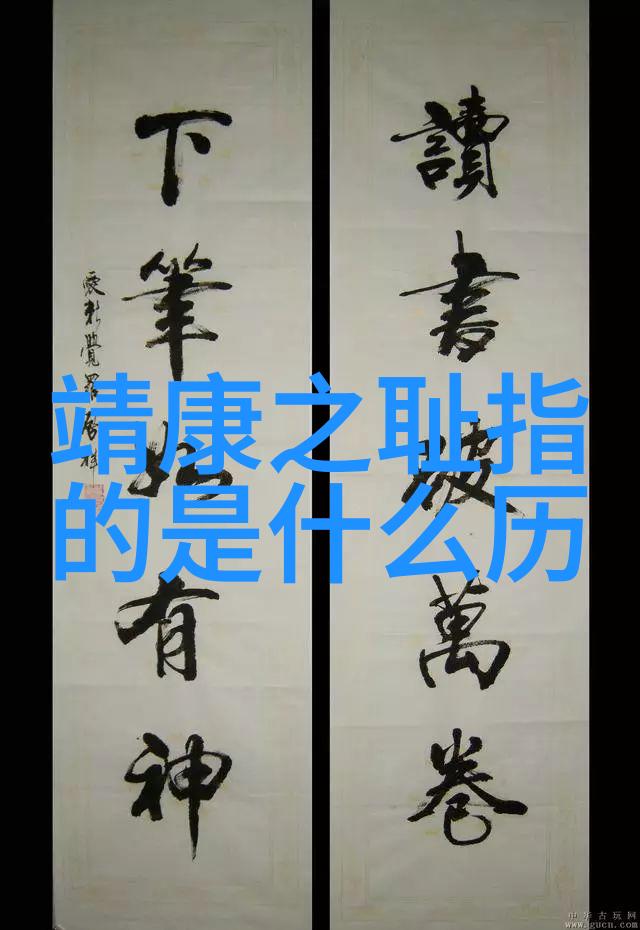 靖康之耻指
的是什么历
讀書破萬卷
下筆如有神
愛新覺羅啟祥
中华古玩网
www.gucn.com